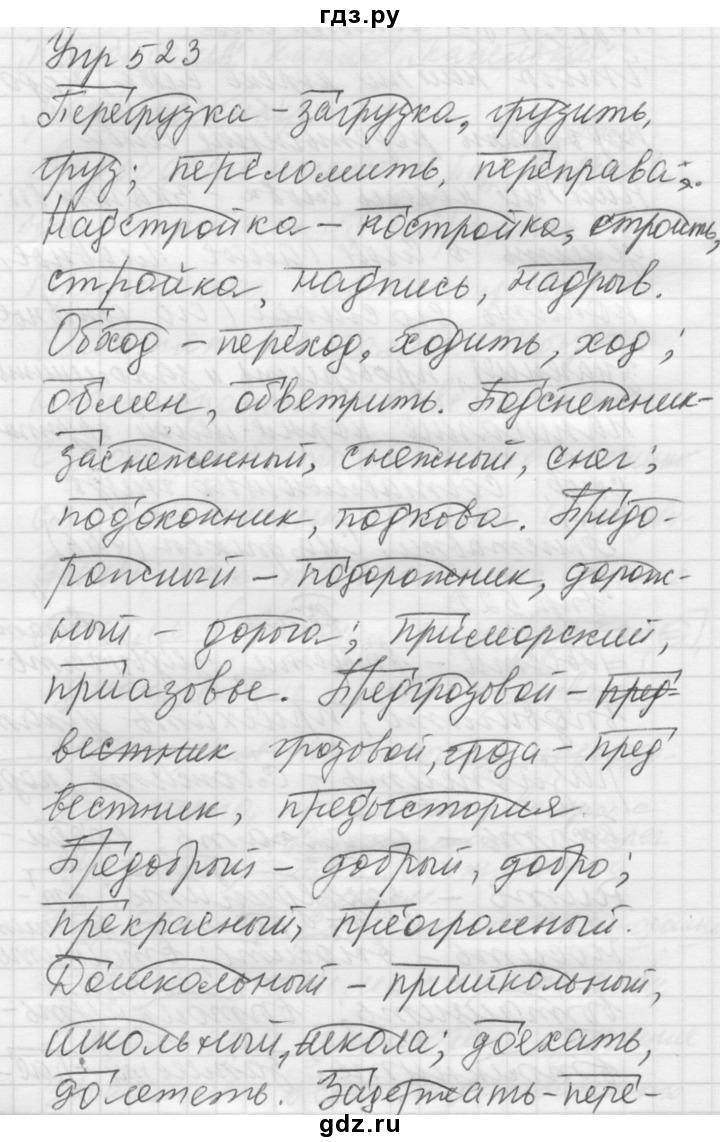 гдз.ру
Упр 523
Перегрузка - загрузка, грузить,
груз; переломить, переправа.
Надстройка - постройка, строить,
стройка, надпись, надрыв.
Обход - переход, ходить, ход;
обмен, обветрить. Подснежник-
заснеженный, снежный, снег;
подоконник, подкова. Придо-
рожный - подорожник, дорож-
ный - дорога; приморский,
приазовье. Предгрозовой - пред-
вестник грозовой, гроза - пред
вестник, предыстория.
Предобрый - добрый, добро;
прекрасный, преогромный.
Дошкольный - пришкольный,
школьный, школа; доехать,
долететь. Задержать - пере-
gdz.ru